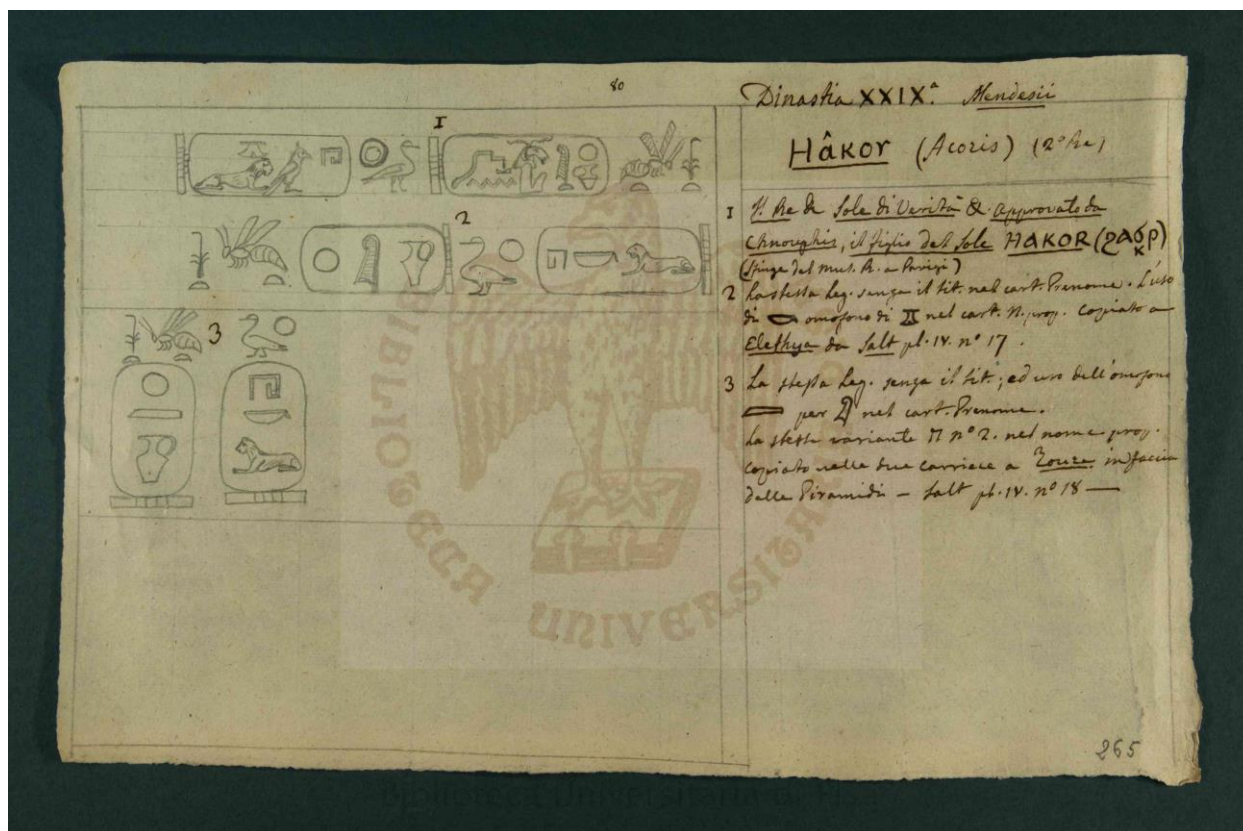 80
Dinastia XXIXª. Mendesii
Hâkor (Acoris) (2º Re)
1
2
3
1 Il Re di Sole di Verità & approvato da
Chnouphis, il figlio del Sole HAKOR (ϩⲁϭⲣ)
K
(Sfinge del Mus. R. a Parigi)
2 La stessa Leg. senza il tit. nel cart. Prenome. L'uso
di omofono di nel cart. N. prop. copiato a
Elethya da Salt pl. IV. nº 17.
3 La stessa Leg. senza il tit.; ed uso dell'omofono
per nel cart. Prenome.
La stessa variante nº 2. nel nome prop.
copiato nelle due carriere a in faccia
delle Piramidi – Salt pl. IV. nº 18 —
265
BIBLIOTECA UNIVERSITARIA
Biblioteca Universitaria di Pisa